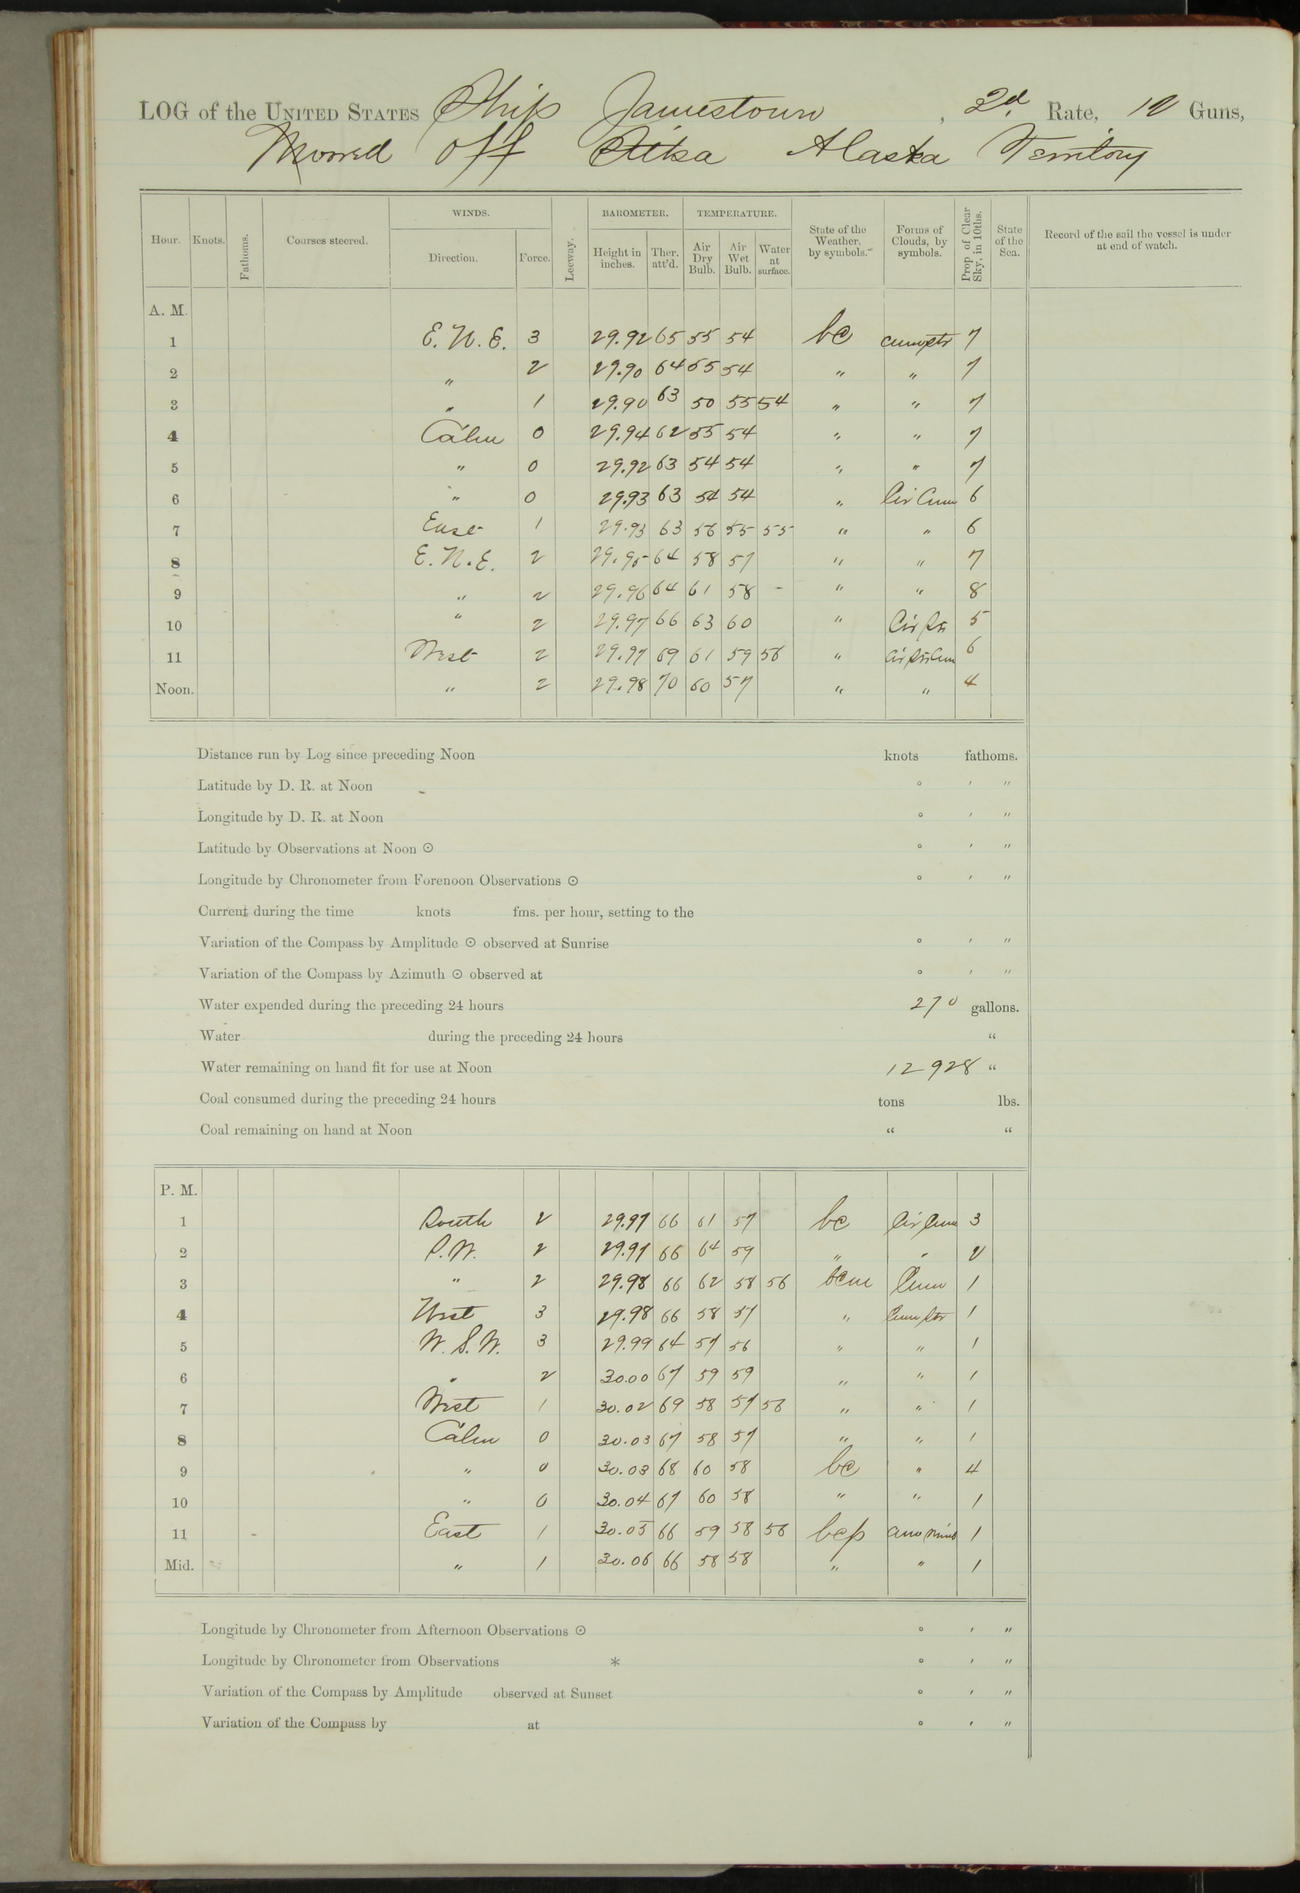 LOG of the UNITED STATES Ship Jamestown, 2d. Rate, 12 Guns,
Moored off Sitka Alaska Territory
WINDS. BAROMETER. TEMPERATURE.
Hour. Knots. Fathoms. Courses steered. Direction. Force. Leeway. Height in inches. Ther. att'd. Air Dry Bulb. Air Wet Bulb. Water at surface. State of the Weather, by symbols. Forms of Clouds, by symbols. Prop of Clear Sky, in 10ths. State of the Sea. Record of the sail the vessel is under at end of watch.
A. M.
1 E. N. E. 3 29.92 65 55 54 bc cum str 7
2 " 2 29.90 64 55 54 " " 7
3 " 1 29.90 63 50 55 54 " " 7
4 Calm 0 29.94 62 55 54 " " 7
5 " 0 29.92 63 54 54 " " 7
6 " 0 29.93 63 54 54 " Cir Cum 6
7 East 1 29.93 63 56 55 55 " " 6
8 E. N. E. 2 29.95 64 58 57 " " 7
9 " 2 29.96 64 61 58 - " " 8
10 " 2 29.97 66 63 60 " Cir Str 5
11 West 2 29.97 69 61 59 56 " Cir Str Cum 6
Noon. " 2 29.98 70 60 57 " " 4
Distance run by Log since preceding Noon knots fathoms.
Latitude by D. R. at Noon ° ′ ″
Longitude by D. R. at Noon ° ′ ″
Latitude by Observations at Noon ☉ ° ′ ″
Longitude by Chronometer from Forenoon Observations ☉ ° ′ ″
Current during the time knots fms. per hour, setting to the
Variation of the Compass by Amplitude ☉ observed at Sunrise ° ′ ″
Variation of the Compass by Azimuth ☉ observed at ° ′ ″
Water expended during the preceding 24 hours 270 gallons.
Water during the preceding 24 hours "
Water remaining on hand fit for use at Noon 12928 "
Coal consumed during the preceding 24 hours tons lbs.
Coal remaining on hand at Noon " "
P. M.
1 South 2 29.97 66 61 57 bc Cir Cum 3
2 S.W. 2 29.97 66 64 59 " " 2
3 " 2 29.98 66 62 58 56 bcm Cum 1
4 West 3 29.98 66 58 57 " Cum Str 1
5 W. S. W. 3 29.99 64 57 56 " " 1
6 " 2 30.00 67 59 59 " " 1
7 West 1 30.02 69 58 57 56 " " 1
8 Calm 0 30.03 67 58 57 " " 1
9 " 0 30.03 68 60 58 bc " 4
10 " 0 30.04 67 60 58 " " 1
11 East 1 30.05 66 59 58 56 bcp cum nimb 1
Mid. " 1 30.06 66 58 58 " " 1
Longitude by Chronometer from Afternoon Observations ☉ ° ′ ″
Longitude by Chronometer from Observations * ° ′ ″
Variation of the Compass by Amplitude observed at Sunset ° ′ ″
Variation of the Compass by at ° ′ ″